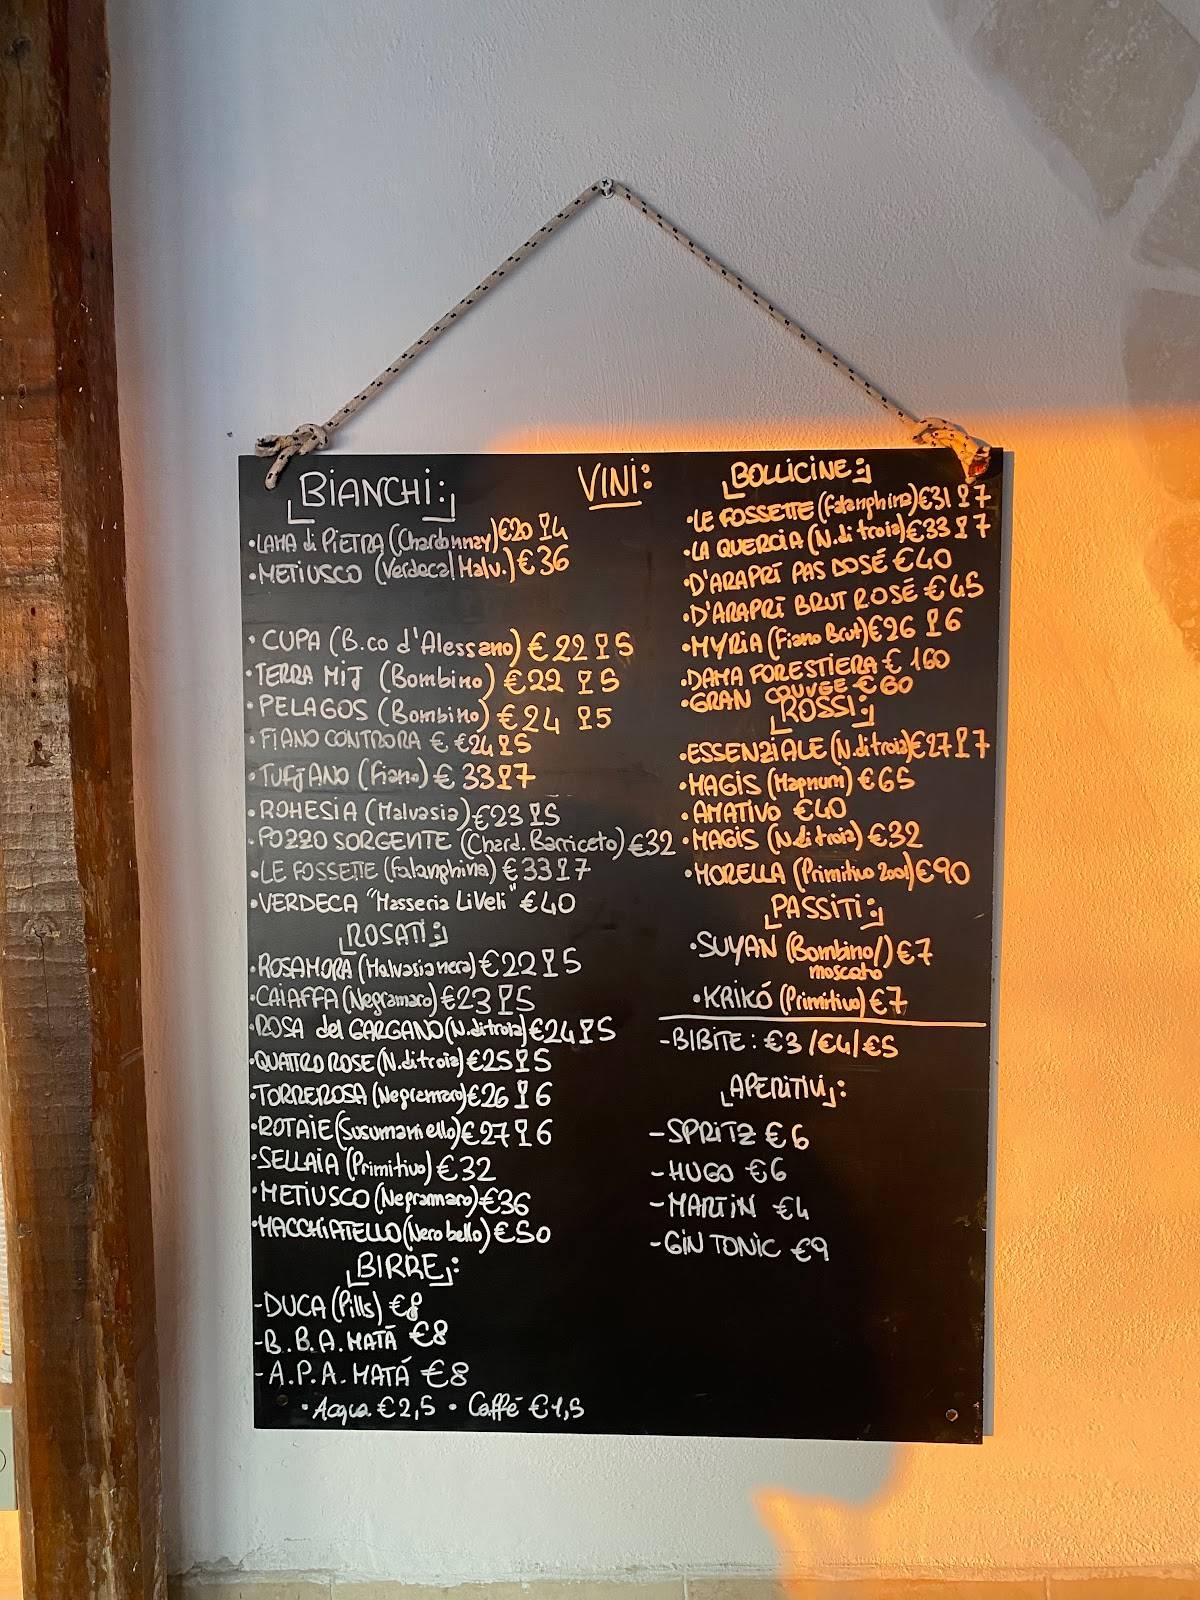 VINI:
BIANCHI:
•LAMA di PIETRA (Chardonnay) €20 4
•METIUSCO (Verdeca/Malv.) €36
•CUPA (B.co d'Alessano) €22 5
•TERRA MIJ (Bombino) €22 5
•PELAGOS (Bombino) €24 5
•FIANO CONTRORA € €24 5
•TUFJANO (Fiano) € 33 7
•ROHESIA (Malvasia) €23 5
•POZZO SORGENTE (Chard. Barricato) €32
•LE FOSSETTE (Falanghina) €33 7
•VERDECA "Masseria LiVeli" €40
ROSATI:
•ROSAMORA (Malvasia nera) €22 5
•CAIAFFA (Negramaro) €23 5
•ROSA del GARGANO (N.di troia) €24 5
•QUATTRO ROSE (N.di troia) €25 5
•TORREROSA (Negramaro) €26 6
•ROTAIE (Susumaniello) €27 6
•SELLAIA (Primitivo) €32
•METIUSCO (Negramaro) €36
•MACCHIATELLO (Nero bello) €50
BIRRE:
-DUCA (Pills) €8
-B.B.A. MATÁ €8
-A.P.A. MATÁ €8
•Acqua €2,5 • Caffé €1,5
BOLLICINE:
•LE FOSSETTE (Falanghina) €31 7
•LA QUERCIA (N.di troia) €33 7
•D'ARAPRÍ PAS DOSÉ €40
•D'ARAPRÍ BRUT ROSÉ €45
•MYRIA (Fiano Brut) €26 6
•DAMA FORESTIERA € 160
•GRAN COUVGE €60
ROSSI:
•ESSENZIALE (N.di troia) €27 7
•MAGIS (Magnum) €65
•AMATIVO €40
•MAGIS (N.di troia) €32
•MORELLA (Primitivo 2001) €90
PASSITI:
•SUYAN (Bombino/) €7
moscato
•KRIKÓ (Primitivo) €7
-BIBITE: €3/€4/€5
APERITIVI:
-SPRITZ €6
-HUGO €6
-MARTINI €4
-GIN TONIC €9